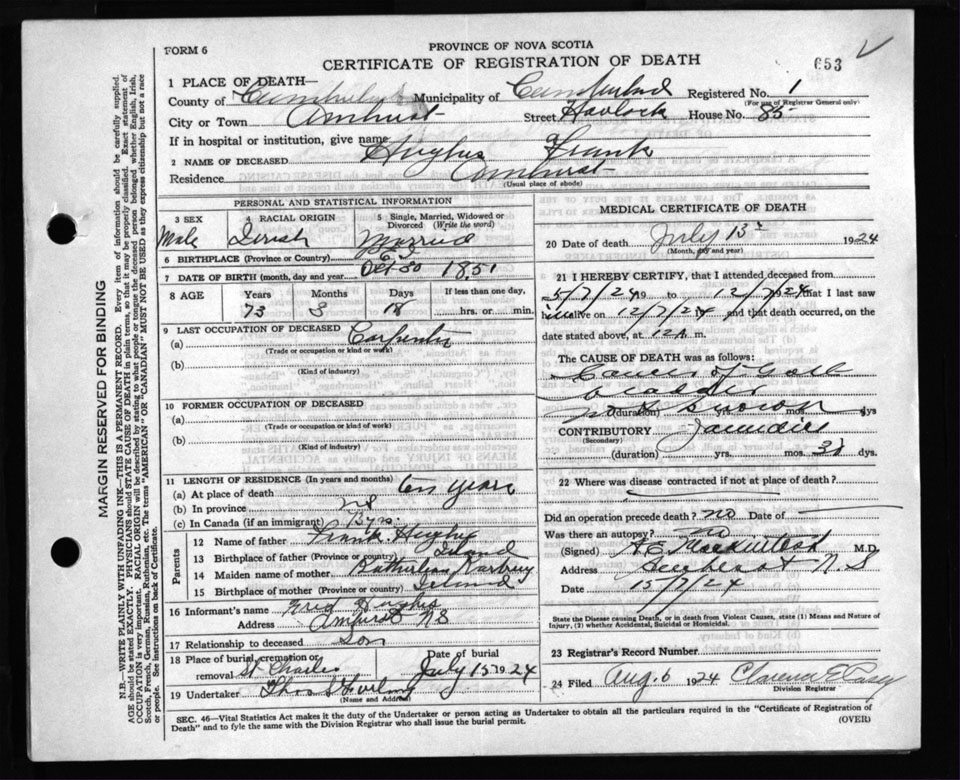 FORM 6
PROVINCE OF NOVA SCOTIA
CERTIFICATE OF REGISTRATION OF DEATH
653
1 PLACE OF DEATH—
County of Municipality of Registered No. 1
(For use of Registrar General only)
City or Town Amherst Street Havlock House No. 85
If in hospital or institution, give name
2 NAME OF DECEASED Hughes Frank
Residence Amherst
(Usual place of abode)
PERSONAL AND STATISTICAL INFORMATION
3 SEX 4 RACIAL ORIGIN 5 Single, Married, Widowed or Divorced (Write the word)
Male Married
6 BIRTHPLACE (Province or Country)
7 DATE OF BIRTH (month, day and year) 1851
8 AGE Years Months Days If less than one day,
73 18 hrs. or min.
9 LAST OCCUPATION OF DECEASED
(a) Carpenter
(Trade or occupation or kind of work)
(b)
(Kind of industry)
10 FORMER OCCUPATION OF DECEASED
(a)
(Trade or occupation or kind of work)
(b)
(Kind of industry)
11 LENGTH OF RESIDENCE (In years and months)
(a) At place of death years
(b) In province
(c) In Canada (if an immigrant)
Parents
12 Name of father Frank Hughes
13 Birthplace of father (Province or country)
14 Maiden name of mother
15 Birthplace of mother (Province or country)
16 Informant's name
Address Amherst NS
17 Relationship to deceased Son
18 Place of burial, cremation or removal St Charles Date of burial July 15 1924
19 Undertaker
(Name and Address)
MEDICAL CERTIFICATE OF DEATH
20 Date of death July 13 1924
(Month, day and year)
21 I HEREBY CERTIFY, that I attended deceased from
5/7/24 19 to 12/7/1924 that I last saw
h alive on 12/7/24 and that death occurred, on
date stated above, at 12 A m.
The CAUSE OF DEATH was as follows:
Cancer of Gall
bladder
(duration) not known mos. dys
CONTRIBUTORY Jaundice
(Secondary)
(duration) yrs. mos. dys.
22 Where was disease contracted if not at place of death?
Did an operation precede death? no Date of —
Was there an autopsy? no
(Signed) M.D.
Address Amherst N.S
Date 15/7/24
State the Disease causing Death, or in death from Violent Causes, state (1) Means and Nature of Injury, (2) whether Accidental, Suicidal or Homicidal.
23 Registrar's Record Number
24 Filed Aug. 6 1924 Clarence E Casey
Division Registrar
SEC. 46—Vital Statistics Act makes it the duty of the Undertaker or person acting as Undertaker to obtain all the particulars required in the "Certificate of Registration of
Death" and to fyle the same with the Division Registrar who shall issue the burial permit. (OVER)
MARGIN RESERVED FOR BINDING
N.B.—WRITE PLAINLY WITH UNFADING INK—THIS IS A PERMANENT RECORD. Every item of information should be carefully supplied.
AGE should be stated EXACTLY. PHYSICIANS should STATE CAUSE OF DEATH in plain terms, so that it may be properly classified. Exact statement of
OCCUPATION is very important. RACIAL ORIGIN will be described by stating to what people or tongue the deceased person belonged whether English, Irish,
Scotch, French, German, Russian, Ruthenian, etc. The terms "AMERICAN" or "CANADIAN" MUST NOT BE USED as they express citizenship but not a race
or people. See instructions on back of Certificate.